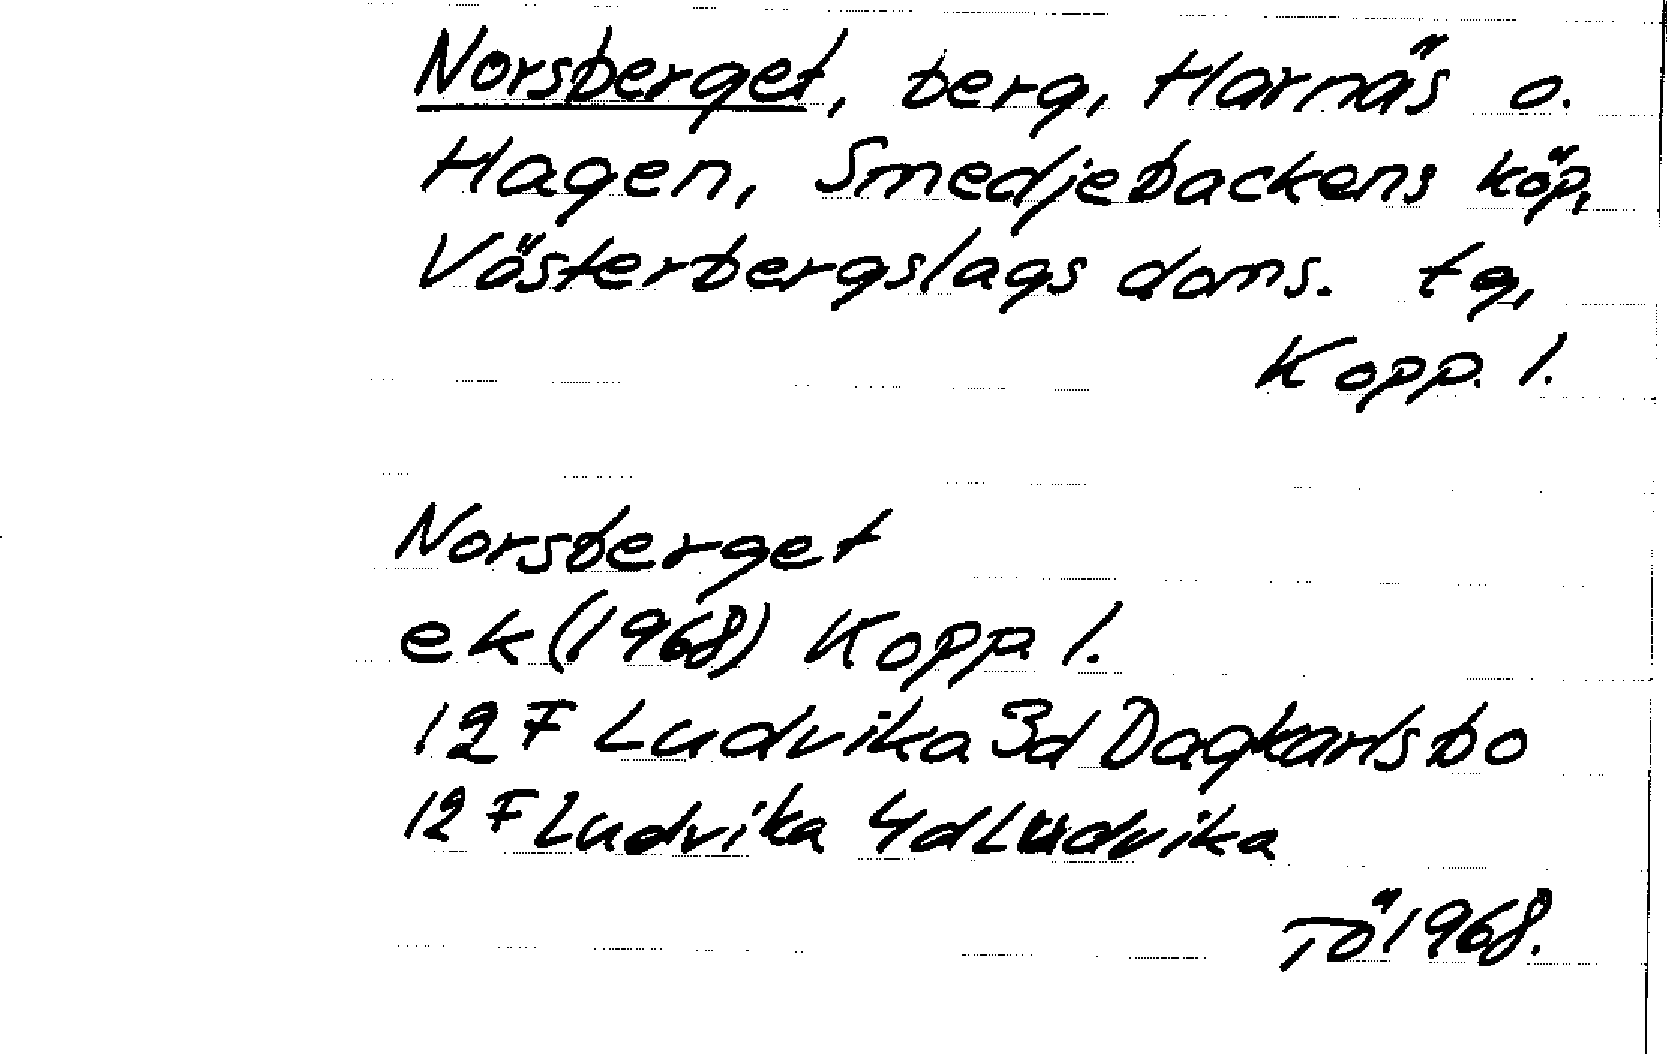 Norsberget, berg, Harnäs o.
Hagen, Smedjebackens köp,
Västerbergslags doms. tg,
Kopp. l.
Norsberget
ek (1968) Kopp l.
12 F Ludvika 3d Dagkarlsbo
12 F Ludvika 4d Ludvika
TÖ 1968.